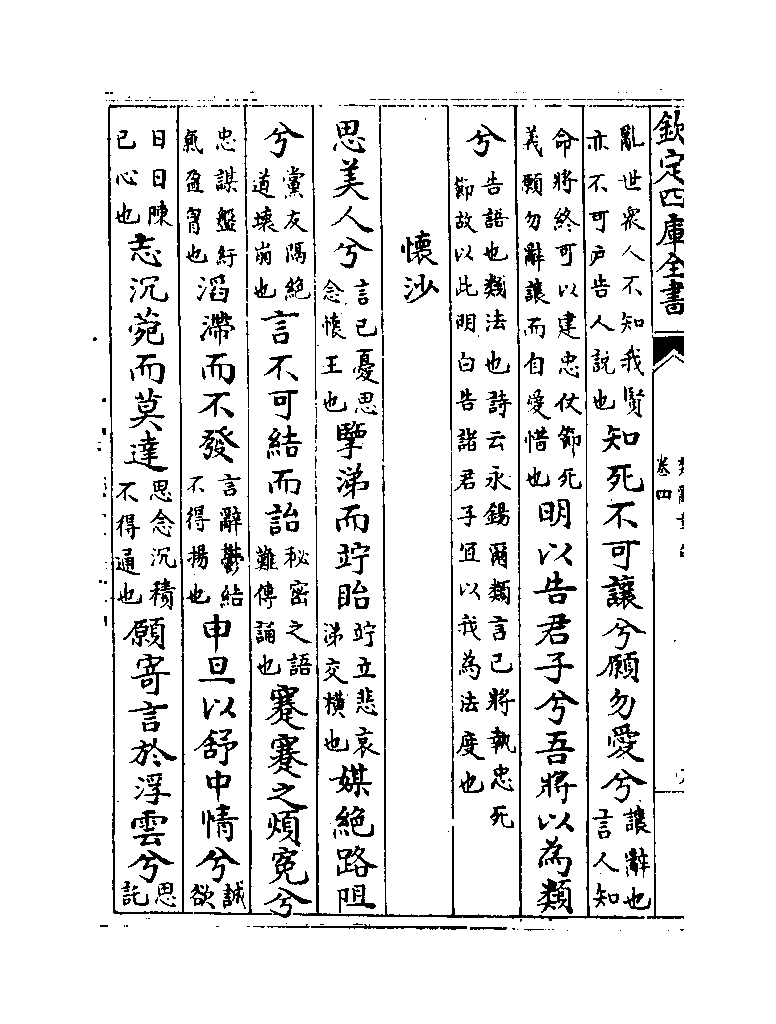 欽定四庫全書
卷四
亂世衆人不知我賢亦不可戶告人說也知死不可讓兮願勿愛兮讓辭也言人知
命將終可以建忠仗節死義願勿辭讓而自愛惜也明以告君子兮吾將以為類
兮告語也類法也詩云永錫爾類言已將執忠死節故以此明白告諸君子宜以我為法度也
懷沙
思美人兮言已憂思念懷王也擥涕而竚眙竚立悲哀涕交橫也媒絶路阻
兮黨友隔絶道壊崩也言不可結而詒秘密之語難傳誦也蹇蹇之煩寃兮
忠謀盤紆氣盈胷也滔滯而不發言辭鬱結不得揚也申旦以舒中情兮誠欲
日日陳已心也志沉菀而莫達思念沉積不得通也願寄言於浮雲兮思託